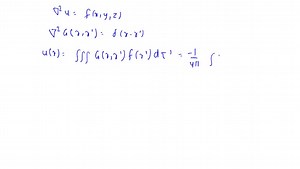 ∇²u = f(x,y,z)
∇²G(r,r') = δ(r-r')
u(r) = ∭ G(r,r') f(r') dτ' = -1/4π ∫